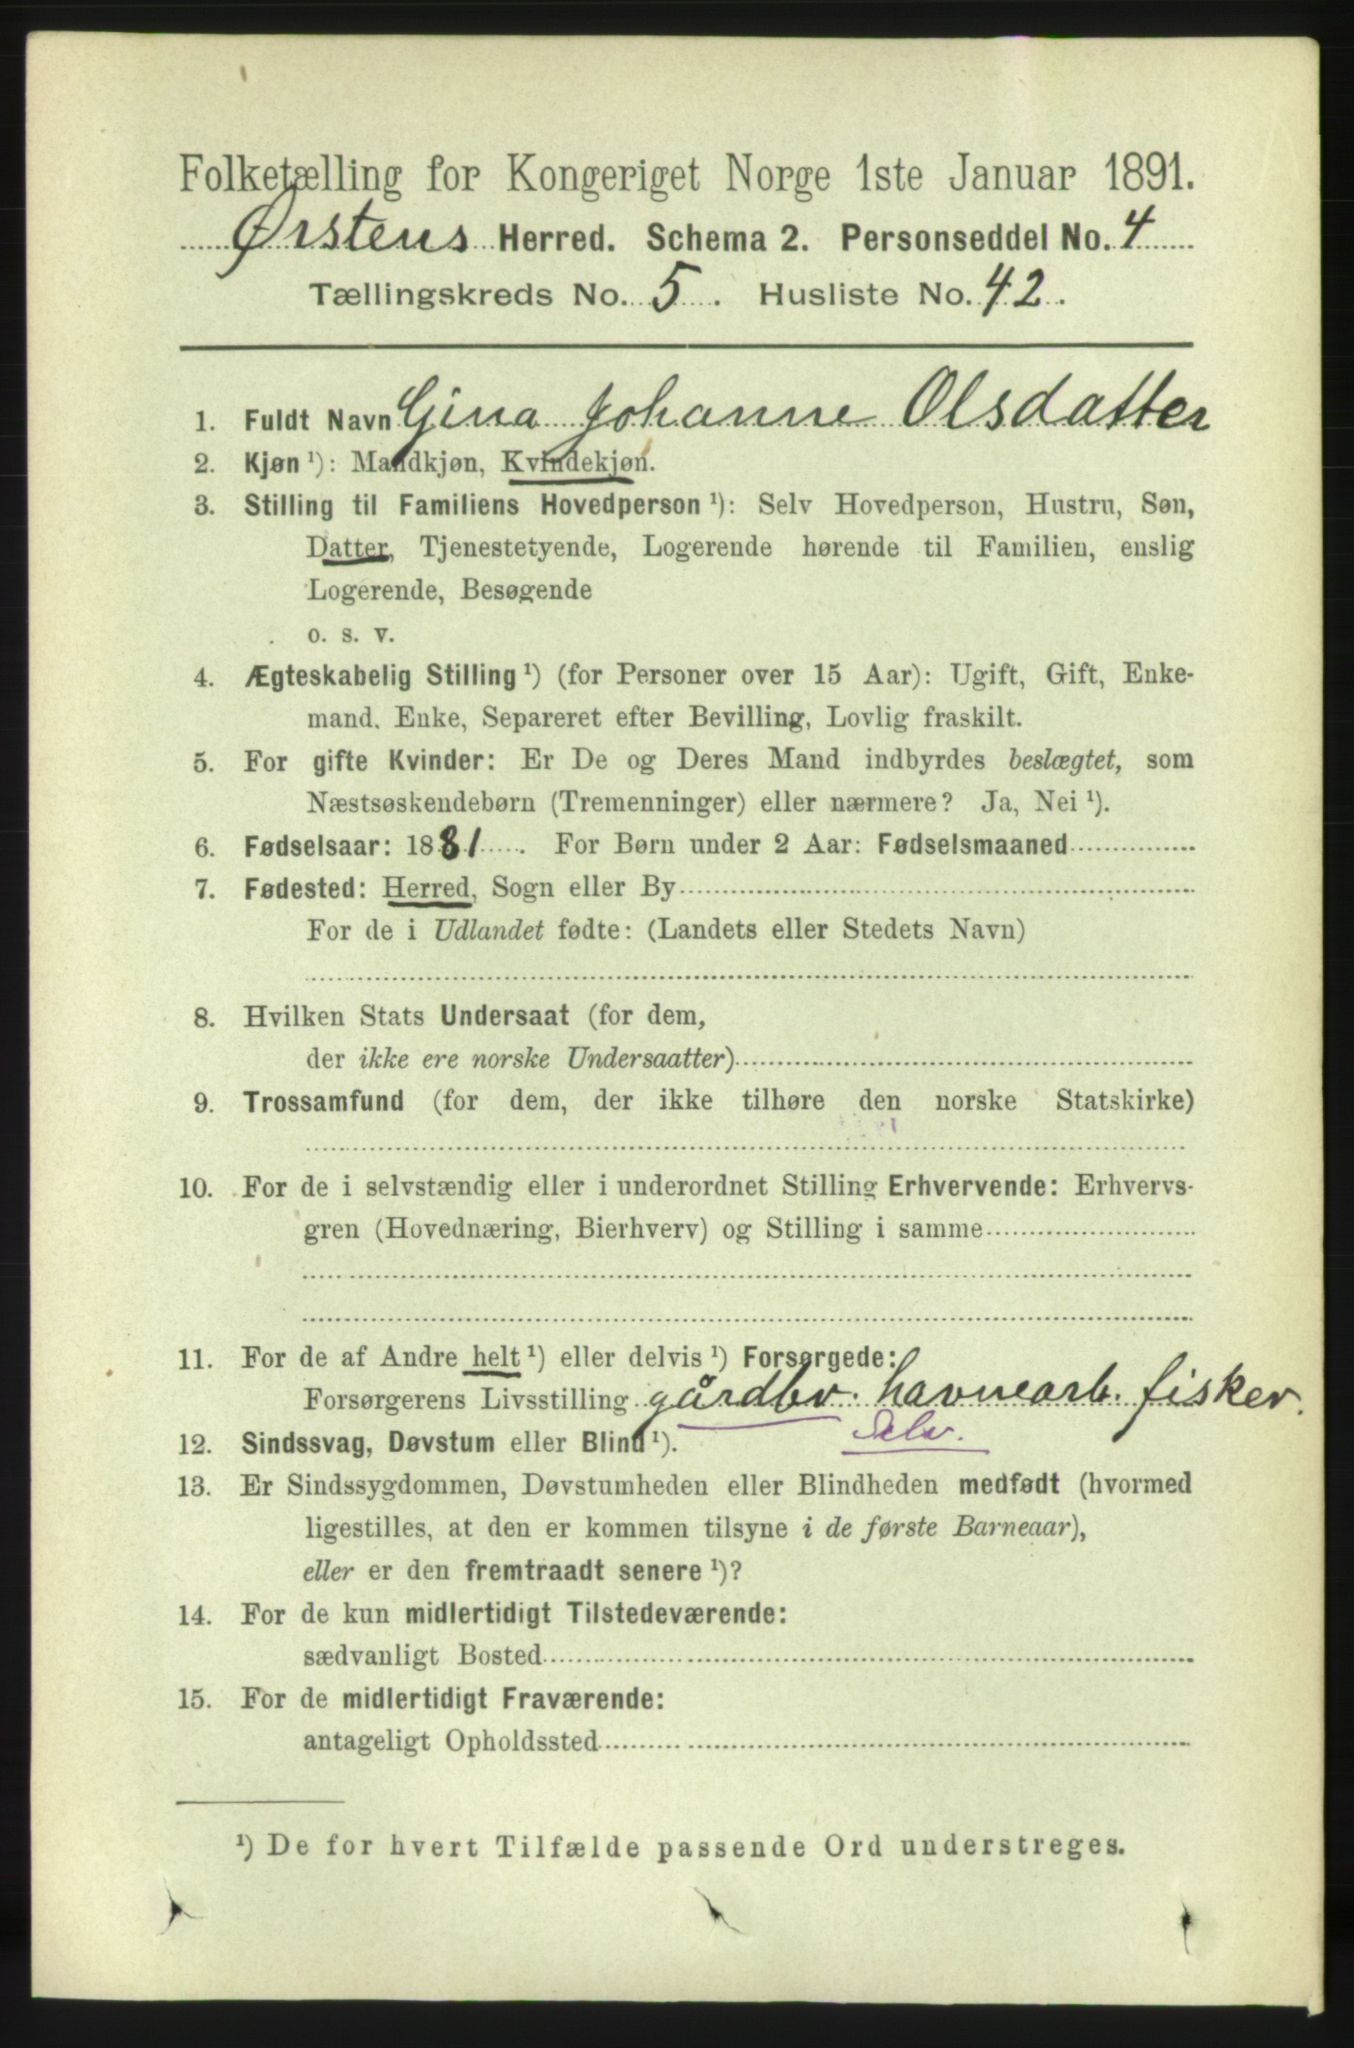 Folketælling for Kongeriget Norge 1ste Januar 1891.
Ørstens Herred. Schema 2. Personseddel No. 4
Tællingskreds No. 5. Husliste No. 42.
1. Fuldt Navn Gina Johanne Olsdatter
2. Kjøn ¹): Mandkjøn, Kvindekjøn.
3. Stilling til Familiens Hovedperson ¹): Selv Hovedperson, Hustru, Søn,
Datter, Tjenestetyende, Logerende hørende til Familien, enslig
Logerende, Besøgende
o. s. v.
4. Ægteskabelig Stilling ¹) (for Personer over 15 Aar): Ugift, Gift, Enke-
mand. Enke, Separeret efter Bevilling, Lovlig fraskilt.
5. For gifte Kvinder: Er De og Deres Mand indbyrdes beslægtet, som
Næstsøskendebørn (Tremenninger) eller nærmere? Ja, Nei ¹).
6. Fødselsaar: 1881. For Børn under 2 Aar: Fødselsmaaned
7. Fødested: Herred, Sogn eller By
For de i Udlandet fødte: (Landets eller Stedets Navn)
8. Hvilken Stats Undersaat (for dem,
der ikke ere norske Undersaatter)
9. Trossamfund (for dem, der ikke tilhøre den norske Statskirke)
10. For de i selvstændig eller i underordnet Stilling Erhvervende: Erhvervs-
gren (Hovednæring, Bierhverv) og Stilling i samme
11. For de af Andre helt ¹) eller delvis ¹) Forsørgede:
Forsørgerens Livsstilling gårdbr. havnearb. fisker.
Selv.
12. Sindssvag, Døvstum eller Blind ¹).
13. Er Sindssygdommen, Døvstumheden eller Blindheden medfødt (hvormed
ligestilles, at den er kommen tilsyne i de første Barneaar),
eller er den fremtraadt senere ¹)?
14. For de kun midlertidigt Tilstedeværende:
sædvanligt Bosted
15. For de midlertidigt Fraværende:
antageligt Opholdssted
¹) De for hvert Tilfælde passende Ord understreges.